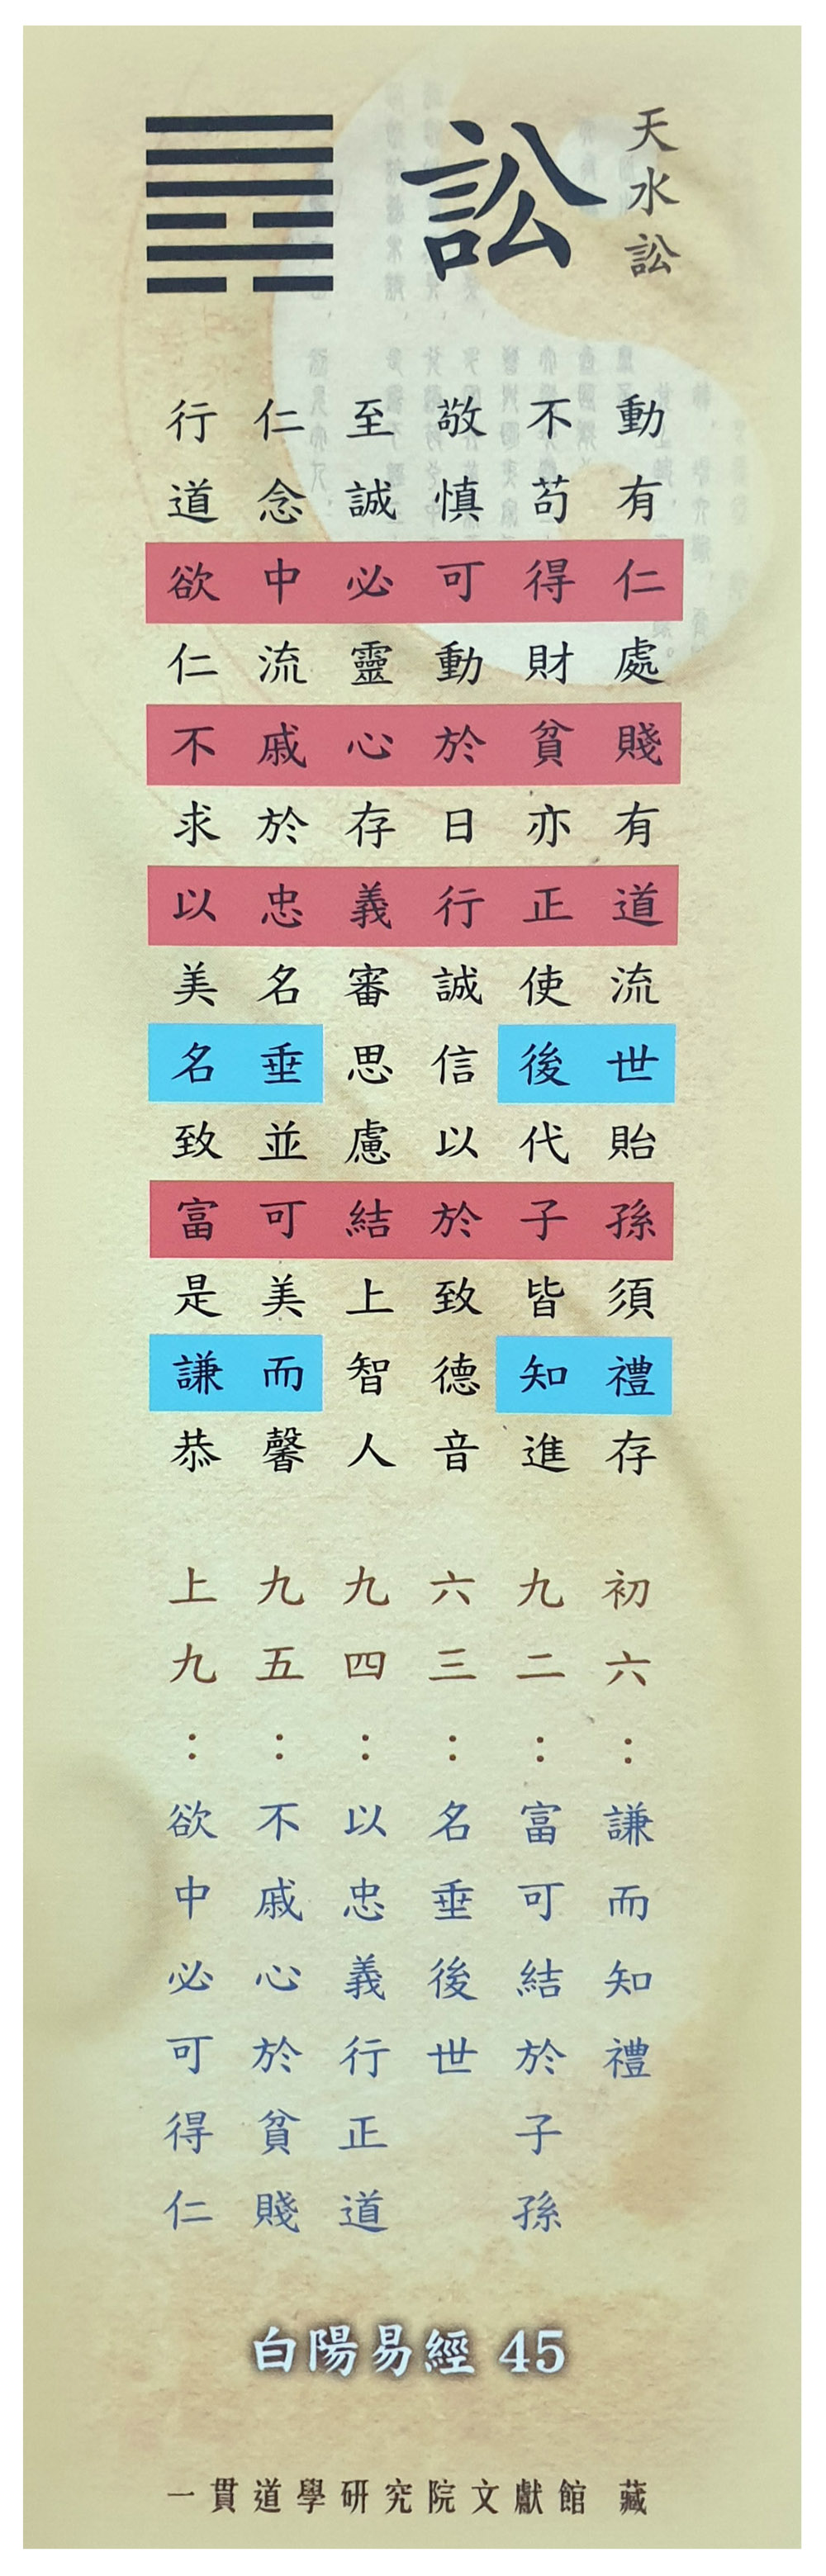 天水訟
訟
動有仁處賤有道流世貽孫須禮存
不苟得財貧亦正使後代子皆知進
敬慎可動於日行誠信以於致德音
至誠必靈心存義審思慮結上智人
仁念中流戚於忠名垂並可美而馨
行道欲仁不求以美名致富是謙恭
初六：謙而知禮
九二：富可結於子孫
六三：名垂後世
九四：以忠義行正道
九五：不戚心於貧賤
上九：欲中必可得仁
白陽易經 45
一貫道學研究院文獻館 藏